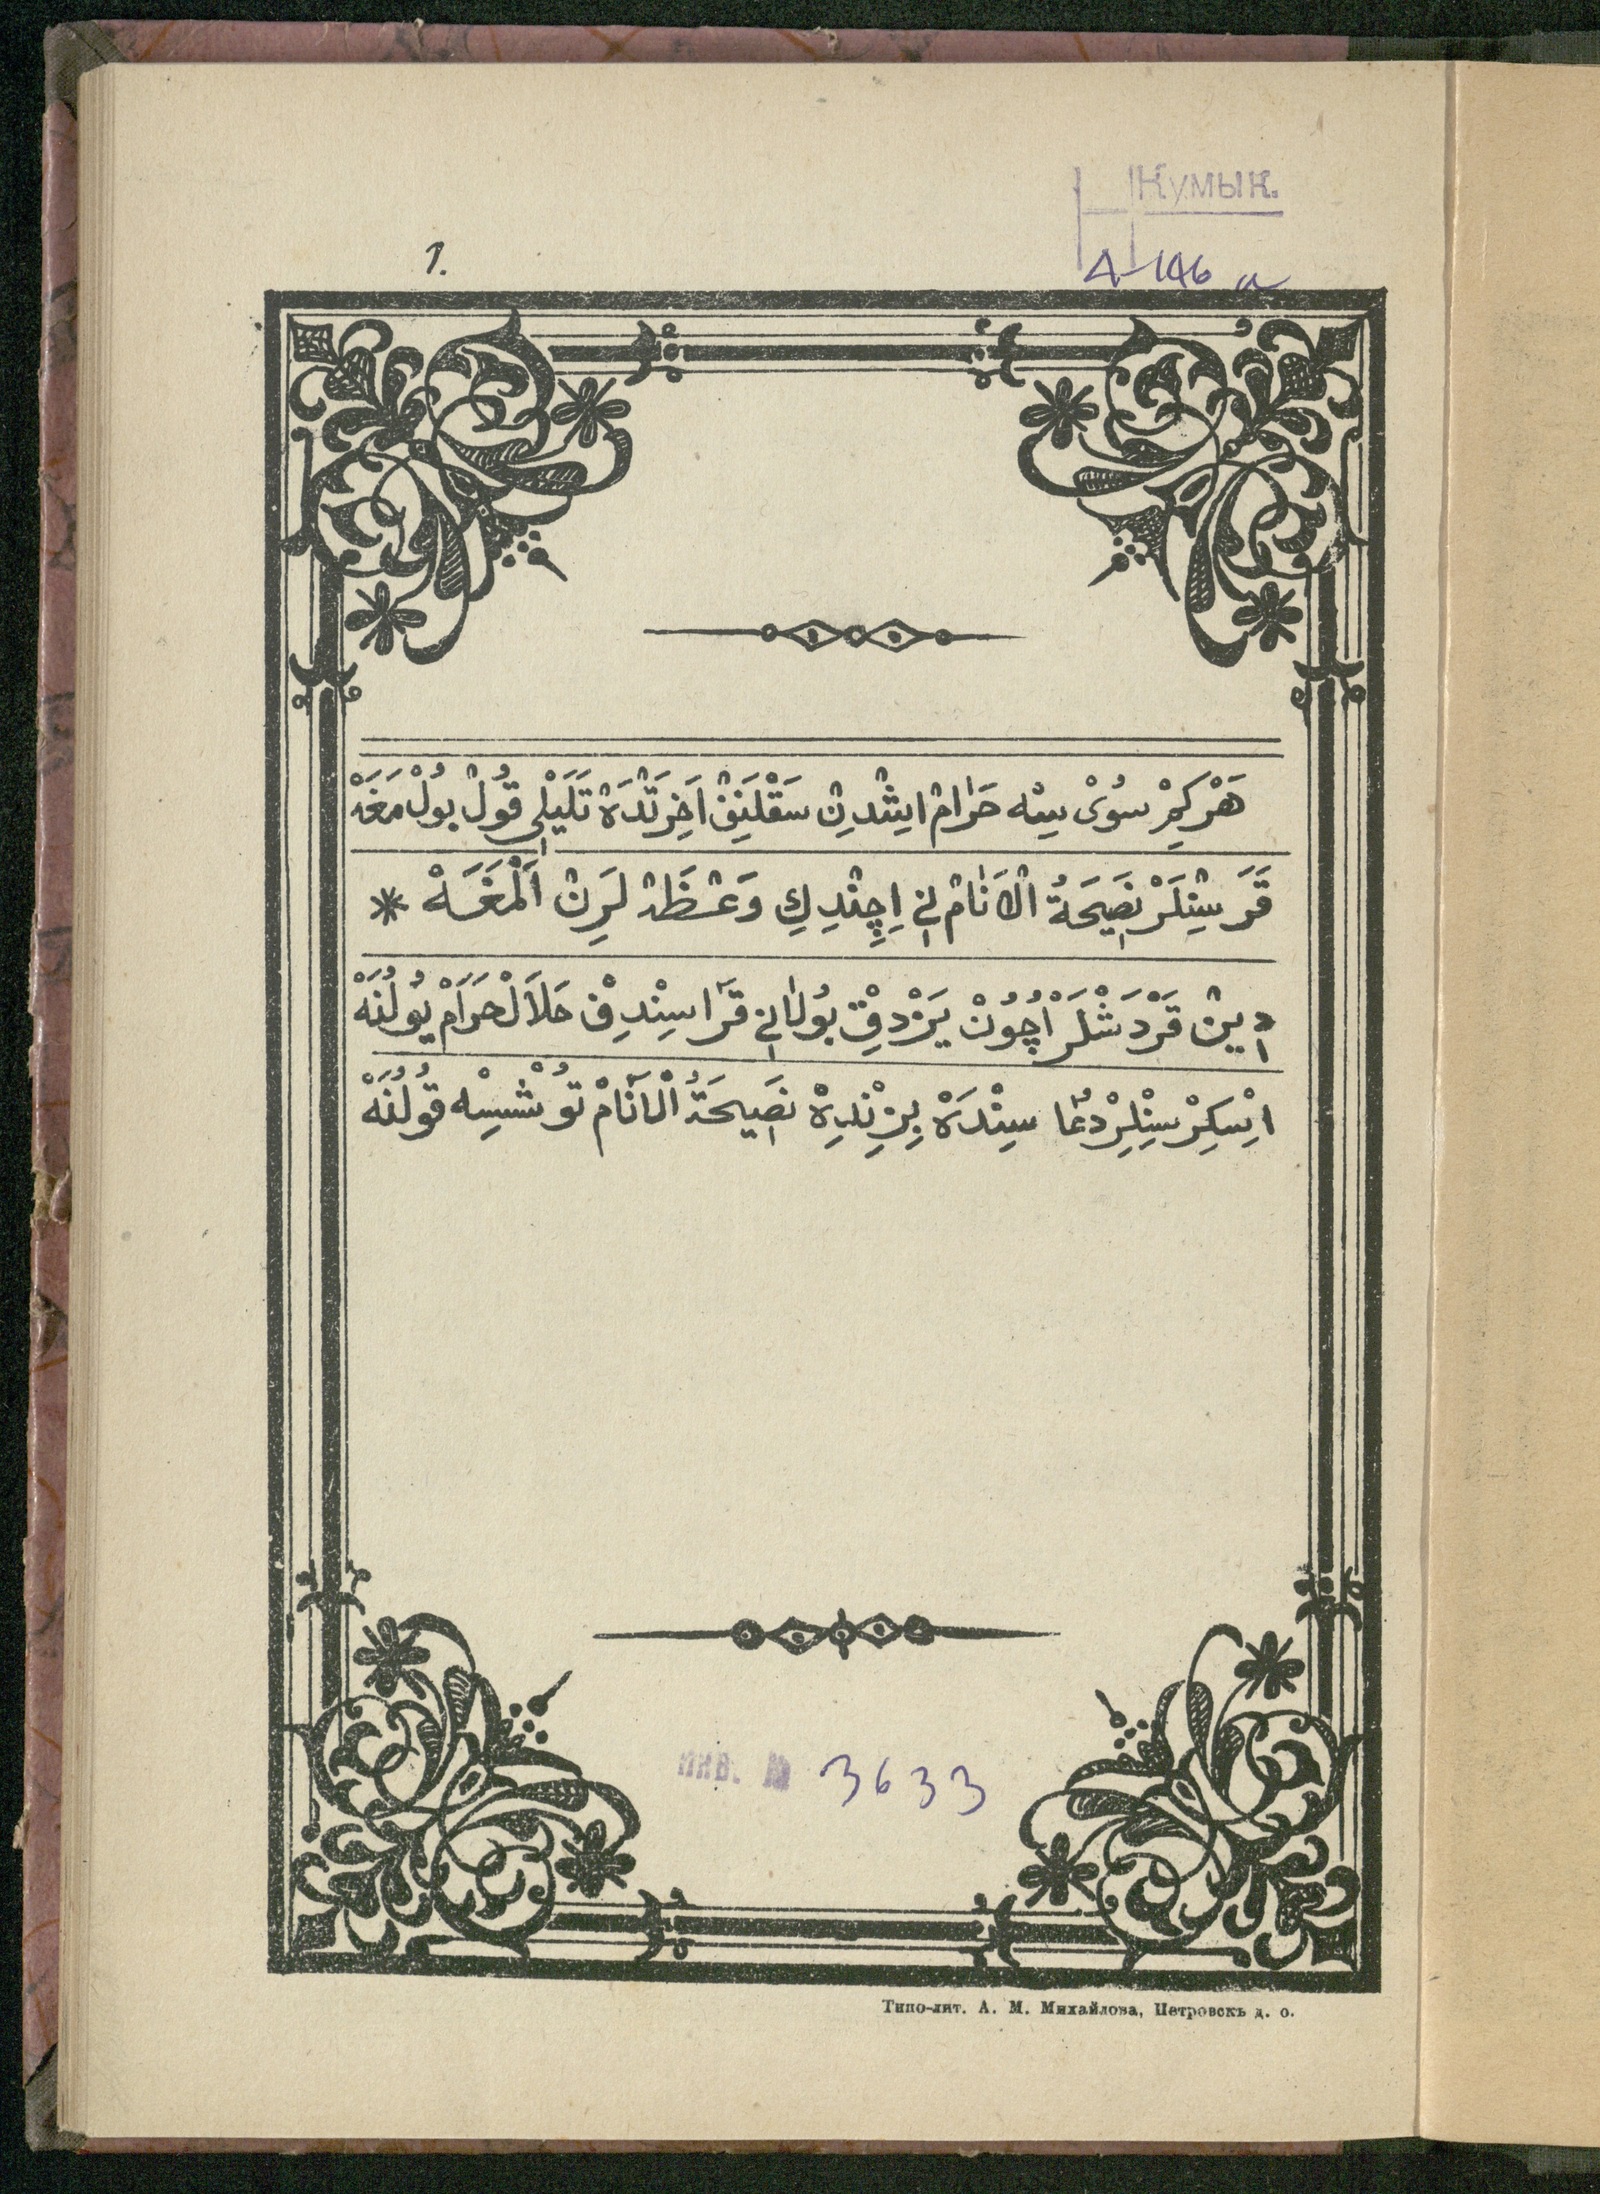 Кумык.
1.
A-146 a
هَرْ كِمْ سُوْىْ سِنْه حَرٰامْ اِيشْدِنْ سَقْلَنِقْ اَخِرَتْدَهْ تَلَيْلِى قُولْ بُولْمَغَهْ
قَرَ سِنْلَرْ نَصِيحَةُ الْاَنٰامْ نِى اِچِنْدِكِ وَعْظَدْ لَرِنْ اَلْمَغَهْ *
دِينْ قَرْدَشْلَرْ اُچُونْ يَزْدِقْ بُولٰانِى قَرٰا سِنْدِقْ حَلَالْ حَرَامْ يُولُنَهْ
اِسْكِرْ سِنْلِرْ دُعٰا سِنْدَهْ بِزْنْدِهْ نَصِيحَةُ الْاَنٰامْ تُوشْسِهْ قُولُنَهْ
инв. № 3633
Типо-лит. А. М. Михайлова, Петровскъ д. о.